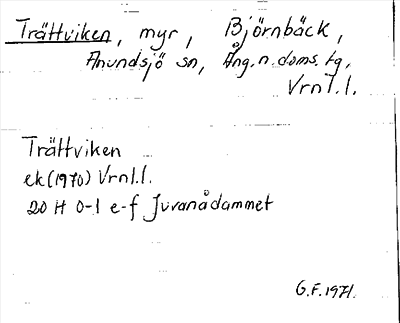 Trättviken, myr, Björnbäck,
Anundsjö sn, Ång. n. doms. tg.
Vrnl.l.
Trättviken
ek (1970) Vrnl.l.
20 H 0-1 e-f Juvanådammet
G.F. 1971.